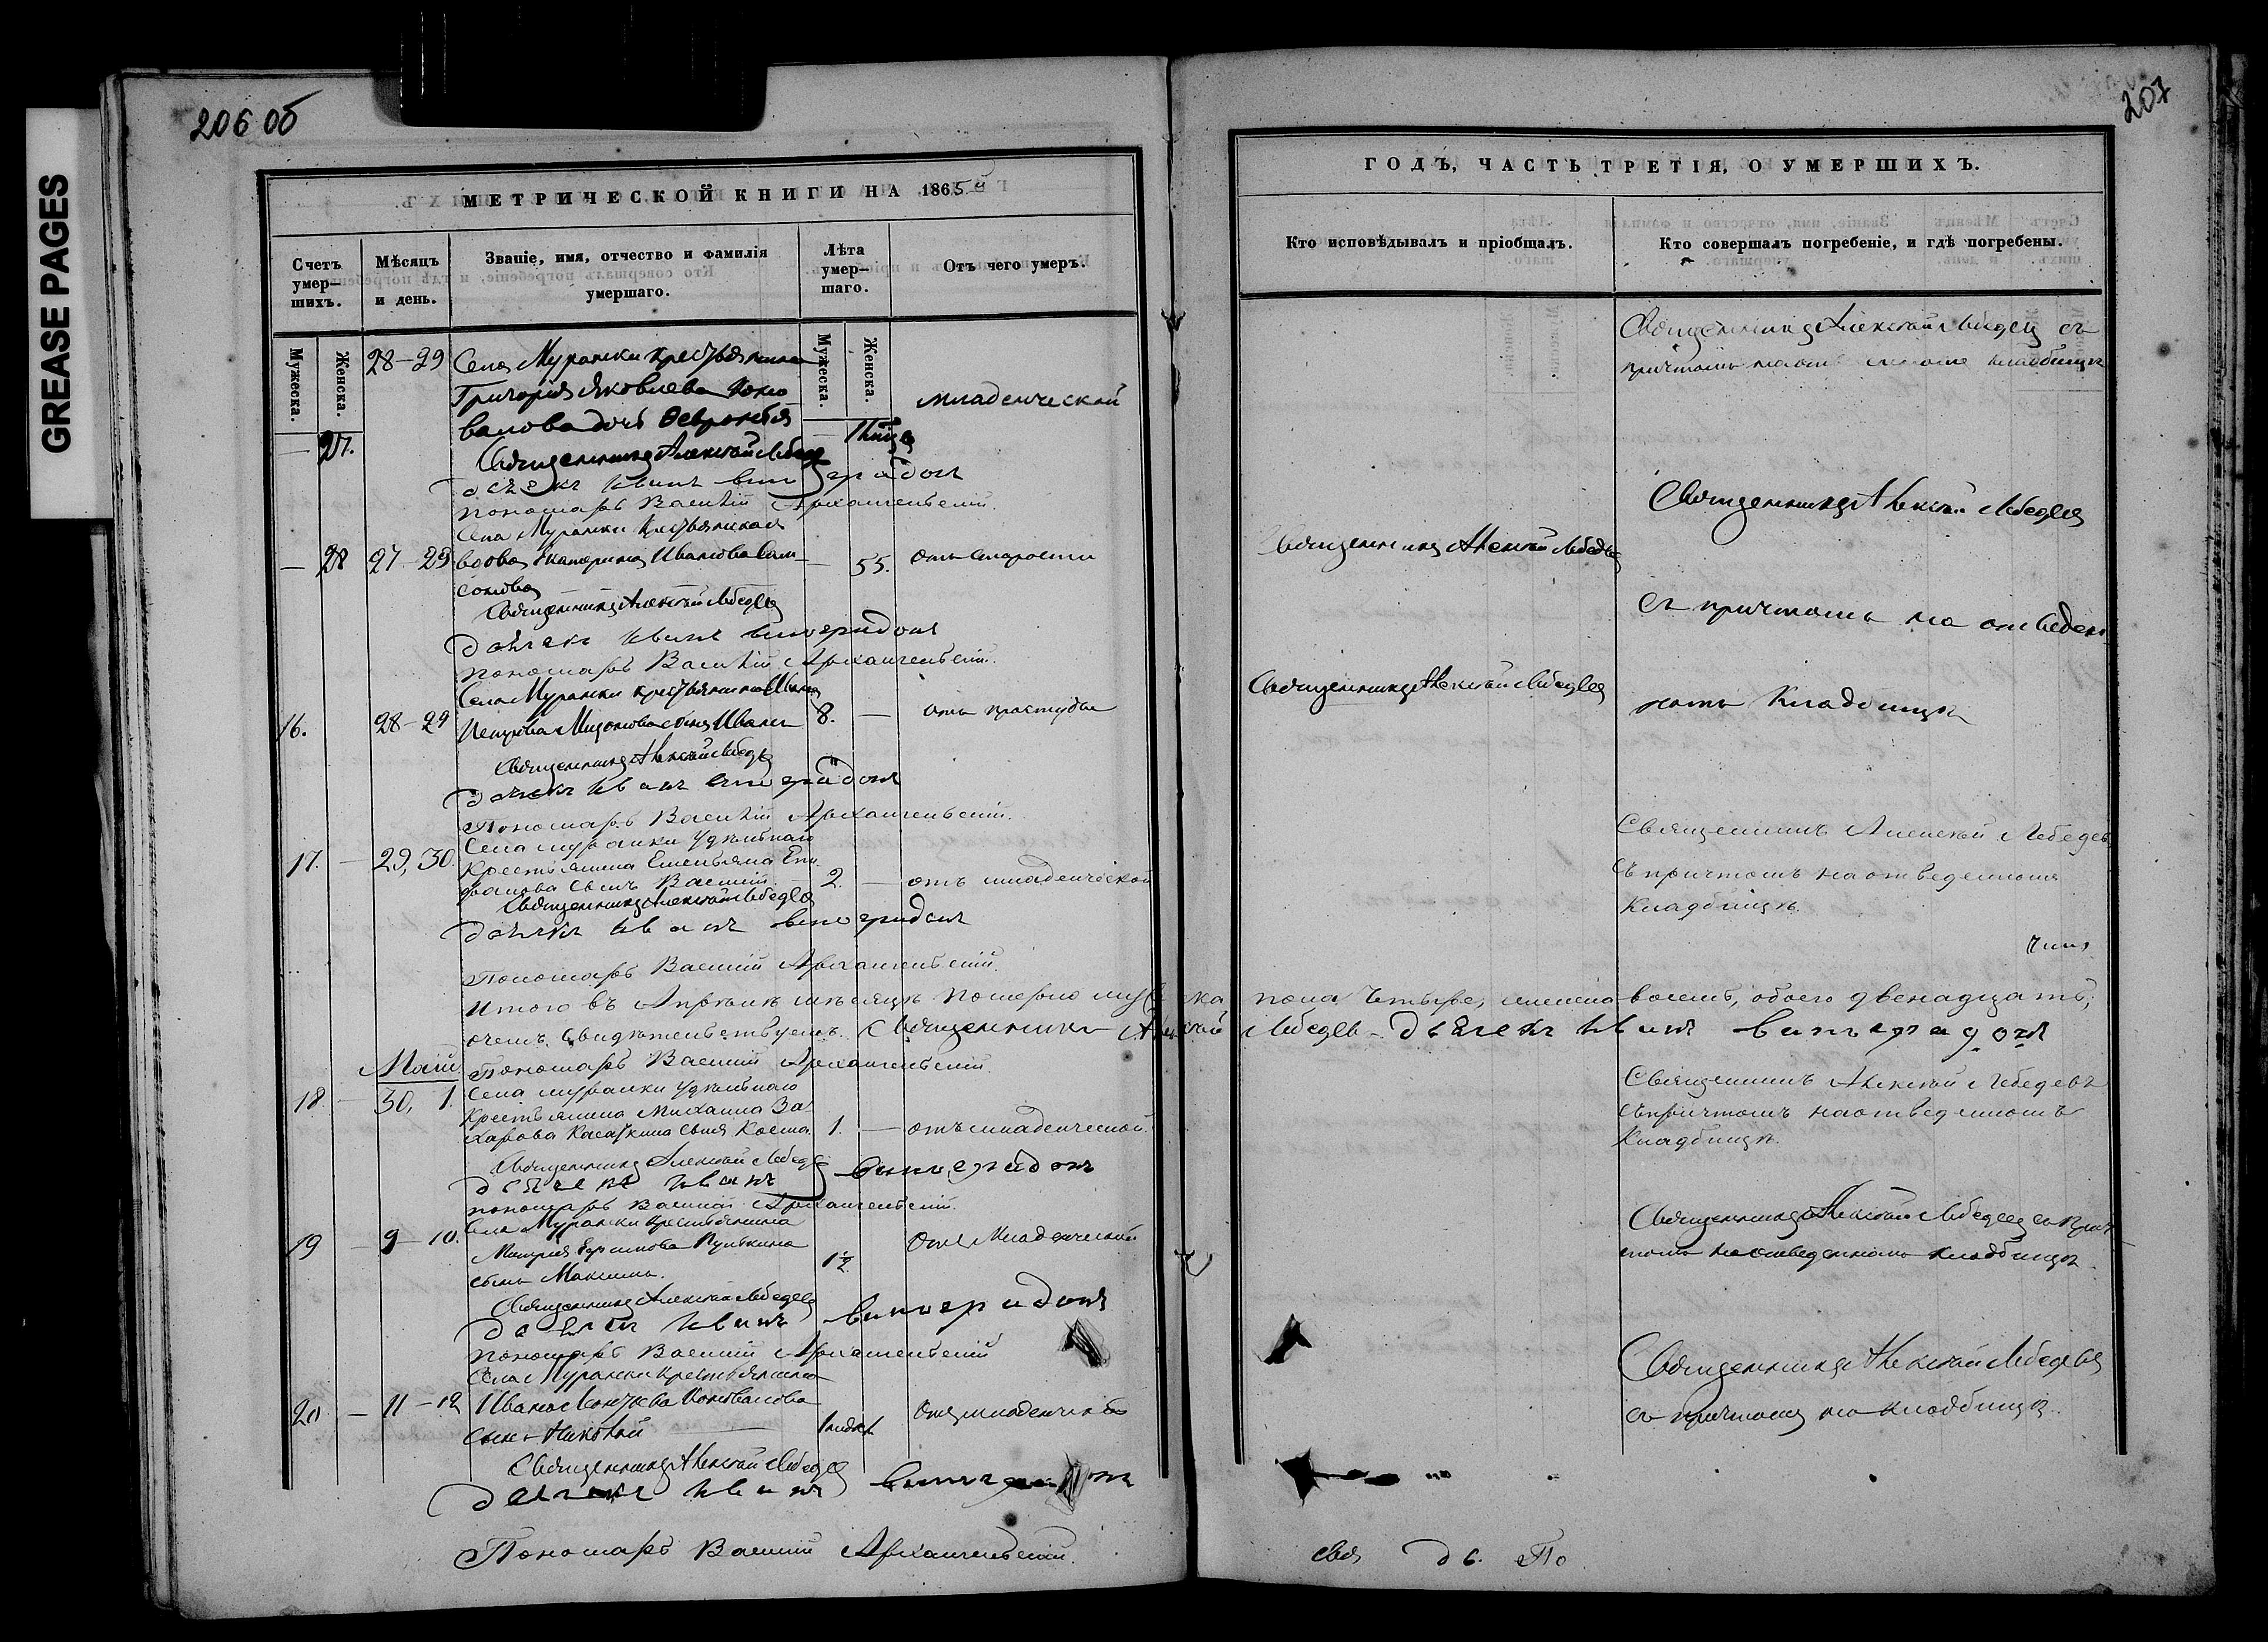 GREASE PAGES
206 об
МЕТРИЧЕСКОЙ КНИГИ НА 1865 й
Счетъ умер-шихъ.
Мѣсяцъ и день.
Званіе, имя, отчество и фамилія умершаго.
Лѣта умер-шаго.
Отъ чего умеръ.
Мужеска.
Женска.
Мужеска.
Женска.
28-29 Села Муранки крестьянина
Григорія Яковлева Коно
валова дочь Февронія
младенческой
— 27.
Священникъ Алексѣй Лебедевъ
дьячекъ Иванъ виноградовъ
пономарь Василій Архангельскій.
Села Муранки крестьянская
— 28 27-29 вдова Екатерина Иванова Сам
сонова — 55. отъ старости
Священникъ Алексѣй Лебедевъ
дьячекъ Иванъ виноградовъ
пономарь Василій Архангельскій.
Села Муранки крестьянина Ивана
16. 28-29 Петрова сынъ Иванъ 8. — отъ простуды
Священникъ Алексѣй Лебедевъ
дьячекъ Иванъ виноградовъ
Пономарь Василій Архангельскій.
Села муранки удѣльнаго
17. — 29, 30. Крестьянина Емельяна Епи
фанова сынъ Василій 2. — отъ младенческой
Священникъ Алексѣй Лебедевъ
дьячекъ Иванъ виноградовъ
Пономарь Василій Архангельскій.
Итого въ Апрѣлѣ мѣсяцѣ померло мужеска
очемъ свидѣтельствуемъ. Священникъ Алексѣй
Маій Пономарь Василій Архангельскій.
Села муранки удѣльнаго
18. — 30, 1. Крестьянина Михаила За
харова Касаткина сынъ Косма. 1. — отъ младенческой.
Священникъ Алексѣй Лебедевъ
дьячекъ Иванъ виноградовъ
пономарь Василій Архангельскій.
Села Муранки крестьянина
19 — 9-10. Пулькина
сынъ Максимъ. 1½
Отъ Младенческой
Священникъ Алексѣй Лебедевъ
дьячекъ Иванъ виноградовъ
пономарь Василій Архангельскій
Села Муранки крестьянина
20 — 11-12 Ивана Коновалова
сынъ Николай
Отъ младенческой
Священникъ Алексѣй Лебедевъ
дьячекъ Иванъ виноградовъ
Пономарь Василій Архангельскій.
207
ГОДЪ, ЧАСТЬ ТРЕТІЯ, О УМЕРШИХЪ.
Кто исповѣдывалъ и пріобщалъ.
Кто совершалъ погребеніе, и гдѣ погребены.
Священникъ Алексѣй Лебедевъ съ
причтомъ на кладбищѣ
Священникъ Алексѣй Лебедевъ
Священникъ Алексѣй Лебедевъ
съ причтомъ на отведен
Священникъ Алексѣй Лебедевъ
номъ Кладбищѣ
Священникъ Алексѣй Лебедевъ
съ причтомъ на отведенномъ
Кладбищѣ.
пола четыре, женска восемь, обоего двенадцать;
Лебедевъ дьячекъ Иванъ виноградовъ
Священникъ Алексѣй Лебедевъ
съ причтомъ на отведенномъ
Кладбищѣ.
Священникъ Алексѣй Лебедевъ съ прич
томъ на отведенномъ кладбищѣ.
Священникъ Алексѣй Лебедевъ
съ причтомъ на кладбищѣ.
свя дь. По